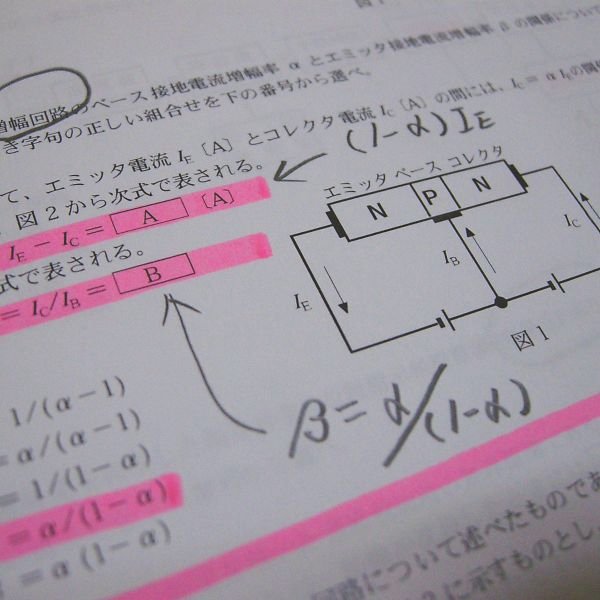 増幅回路のベース接地電流増幅率 α とエミッタ接地電流増幅率 β の関係について
き字句の正しい組合せを下の番号から選べ。
て、エミッタ電流 IE〔A〕とコレクタ電流 IC〔A〕の間には、IC = α IEの関係
図2から次式で表される。
(1-α)IE
IE − IC = A 〔A〕
式で表される。
= IC/IB = B
エミッタ ベース コレクタ
N P N
IE
IB
IC
図1
β = α/(1-α)
1/(α−1)
= α/(α−1)
= 1/(1−α)
= α/(1−α)
= α (1−α)
回路について述べたものであ
に示すものとし、